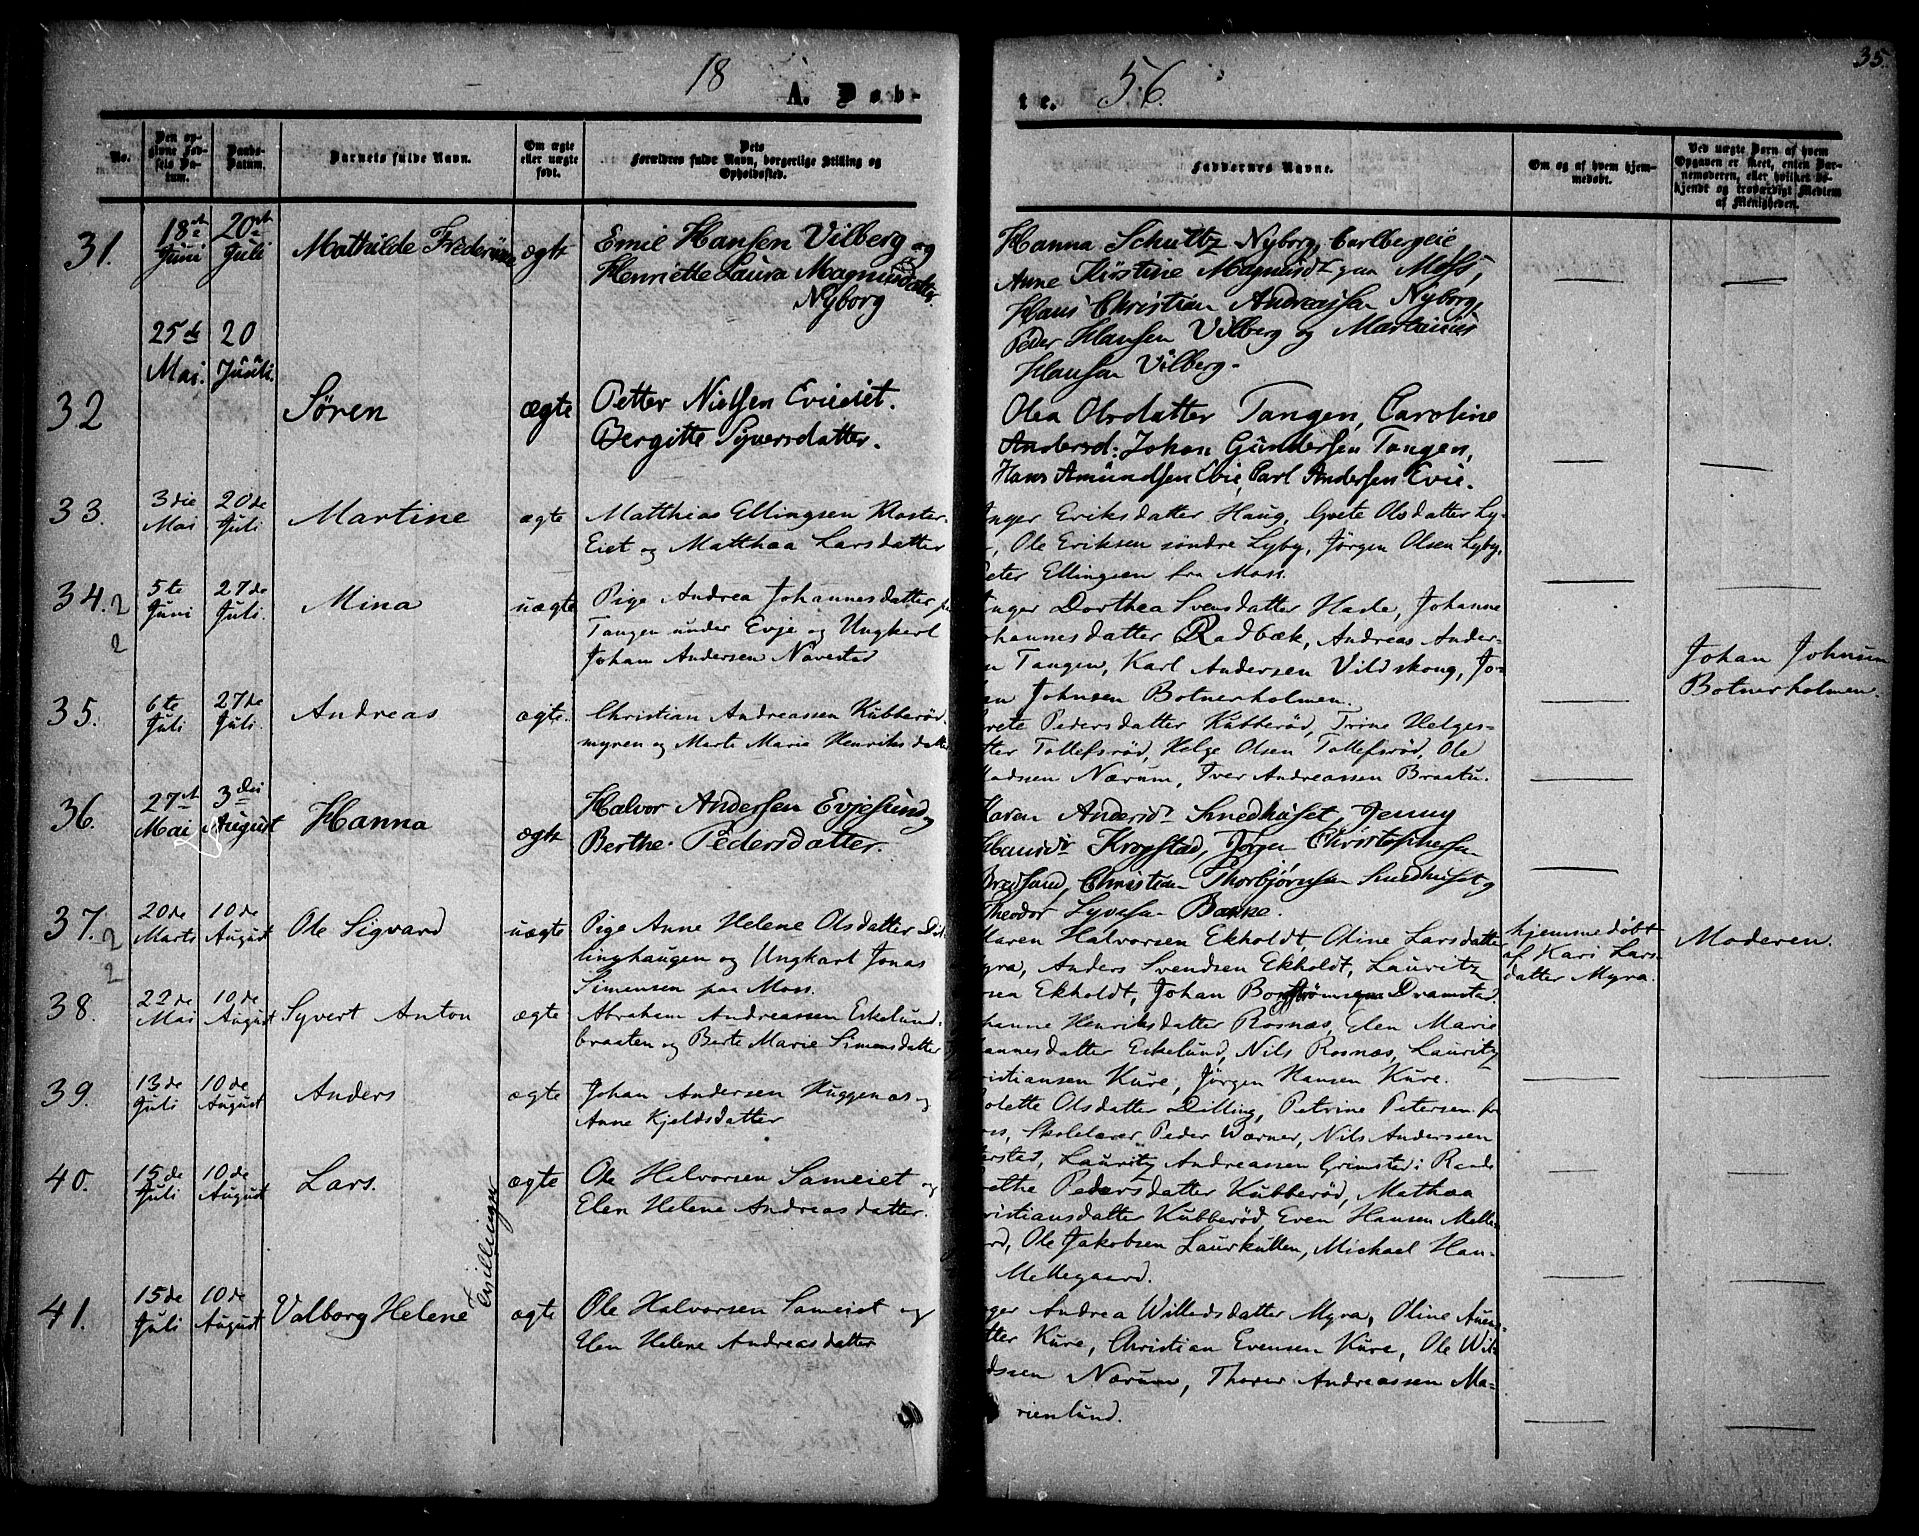 18 A. Døb- te. 56.
35.
No.
Den opgivne Fødsels Datum.
Daabs-Datum.
Barnets fulde Navn.
Om ægte eller uægte født.
Dets Forældres fulde Navn, borgerlige Stilling og Opholdssted.
Faddernes Navne.
Om og af hvem hjemmedøbt.
Ved uægte Barn af hvem Opgaven er skeet, enten Barnemoderen, eller hvilket bekjendt og troværdigt Medlem af Menigheden.
31.
18de Juni
20de Juli
Mathilde
ægte
Emil Hansen Vilberg og
Henriette Laura Magnusdatter
Nyborg
Hanna Schultz Nyborg, Carlbergeie,
Anne Kirstine Magnusdr paa Moss,
Hans Christian Andreassen Nyborg,
Peder Hansen Vilberg og Martinius
Hansen Vilberg.
32
25de Mai.
20 Juuli.
Sören
ægte
Petter Nielsen Evieeiet.
Bergitte Syversdatter.
Olea Olsdatter Tangen, Caroline
Andersd: Johan Gundersen Tangen,
Hans Amundsen Evie, Carl Andersen Evie.
33.
3die Mai
20de Juli
Martine
ægte
Matthias Ellingsen Kloster-
Eiet og Matthæa Larsdatter
Inger Eriksdatter Haug, Grete Olsdatter Ly-
Ole Eriksen søndre Lyby, Jörgen Olsen Lyby,
Peter Ellingsen fra Moss.
34. 2
2
5te Juni
27de Juli.
Mina
uægte
Pige Andrea Johannesdatter fra
Tangen under Evje og Ungkarl
Johan Andersen Navestad
Inger Dorthea Svensdatter Hade, Johanne
Johannesdatter Rødbæk, Andreas Ander-
en Tangen, Karl Andersen Vildskong, Jo-
han Johnsen Botnerholmen.
Johan Johnsen
Botnerholmen.
35.
6te Juli
27de Juli.
Andreas
ægte.
Christian Andreassen Kubberød-
myren og Marte Marie Henriksdatter
Grete Pedersdatter Kubberød, Trine Helges-
tter Tollefsrød, Helge Olsen Tollefsrød, Ole
Madsen Nærum, Iver Andreassen Braatu.
36.
27de Mai
3die August
Hanna
ægte
Halvor Andersen Evjesund og
Berthe Pedersdatter.
Karen Andersdr Snedhuset, Jenny
Hansdr Krogstad, Jörgen Christophersen
Bredsand, Christian Thorbjørnsen Snedhuset og
Theodor Syvesen Bakke.
37. 2
2
20de Marts
10de August
Ole Sigvard
uægte
Pige Anne Helene Olsdatter Dil-
linghaugen og Ungkarl Jonas
Simensen paa Moss.
Maren Halvorsen Ekholdt, Oline Larsdatter
Myra, Anders Svendsen Ekholdt, Lauritz
rsen Ekholdt, Johan Dramstad.
hjemmedøbt
af Kari Lars-
datter Myra.
Moderen.
38.
22de Mai
10de August
Syvert Anton
ægte
Abraham Andreassen Eskelund-
braaten og Berte Marie Simensdatter
hanne Henriksdatter Rosnæs, Elen Marie
hannesdatter Eskelund, Nils Rosnæs, Lauritz
ristiansen Kure, Jörgen Hansen Kure.
39.
13de Juli
10de August
Anders
ægte
Johan Andersen Huggenæs og
Anne Kjeldsdatter
olette Olsdatter Dilling, Petrine Petersen fra
oss, Skolelærer Peder Wærner, Nils Anderssen
erstad, Lauritz Andreassen Grimsted i Raade
40.
15de Juli
10de August
Lars.
Tvillinger
ægte
Ole Halvorsen Sameiet og
Elen Helene Andreasdatter.
ethe Pedersdatter Kubberød, Mathæa
ristiansdatter Kubberød, Even Hansen Melle-
rd, Ole Jakobsen Laurkullen, Michael Han-
Mellegaard.
41.
15de Juli
10de August
Valborg Helene
ægte
Ole Halvorsen Sameiet og
Elen Helene Andreasdatter
nger Andrea Willedsdatter Myra, Oline
tter Kure, Christian Evensen Kure, Ole Wil-
dssen Nærum, Thorer Andreassen Ma-
rienlund.